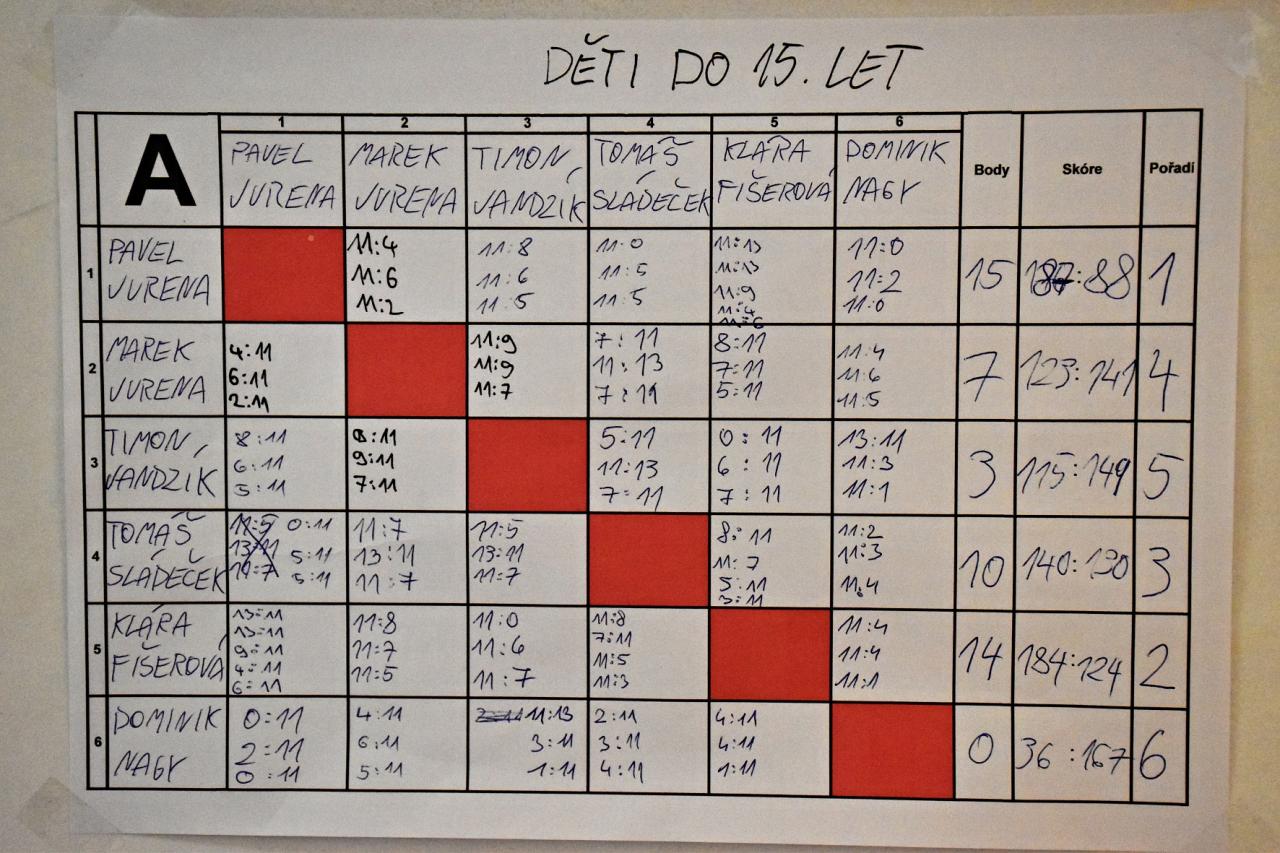 DĚTI DO 15. LET
A
1 2 3 4 5 6
PAVEL JURENA MAREK JURENA TIMON JANDZÍK TOMÁŠ SLÁDEČEK KLÁRA FIŠEROVÁ DOMINIK NAGY Body Skóre Pořadí
1 PAVEL JURENA
11:4 11:8 11:0 11:13 11:0
11:6 11:6 11:5 11:13 11:2
11:2 11:5 11:5 11:9 11:0
11:4
11:6
15 :88 1
2 MAREK JURENA
4:11 11:9 7:11 8:11 11:4
6:11 11:9 11:13 7:11 11:6
2:11 11:7 7:11 5:11 11:5
7 123:141 4
3 TIMON JANDZÍK
8:11 8:11 5:11 0:11 13:11
6:11 9:11 11:13 6:11 11:3
5:11 7:11 7:11 7:11 11:1
3 115:149 5
4 TOMÁŠ SLÁDEČEK
11:5 0:11 11:7 11:5 8:11 11:2
13:11 5:11 13:11 13:11 11:7 11:3
11:7 5:11 11:7 11:7 5:11 11:4
3:11
10 140:130 3
5 KLÁRA FIŠEROVÁ
13:11 11:8 11:0 11:8 11:4
13:11 11:7 11:6 7:11 11:4
9:11 11:5 11:7 11:5 11:1
4:11 11:3
6:11
14 184:124 2
6 DOMINIK NAGY
0:11 4:11 11:13 2:11 4:11
2:11 6:11 3:11 3:11 4:11
0:11 5:11 1:11 4:11 1:11
0 36:167 6